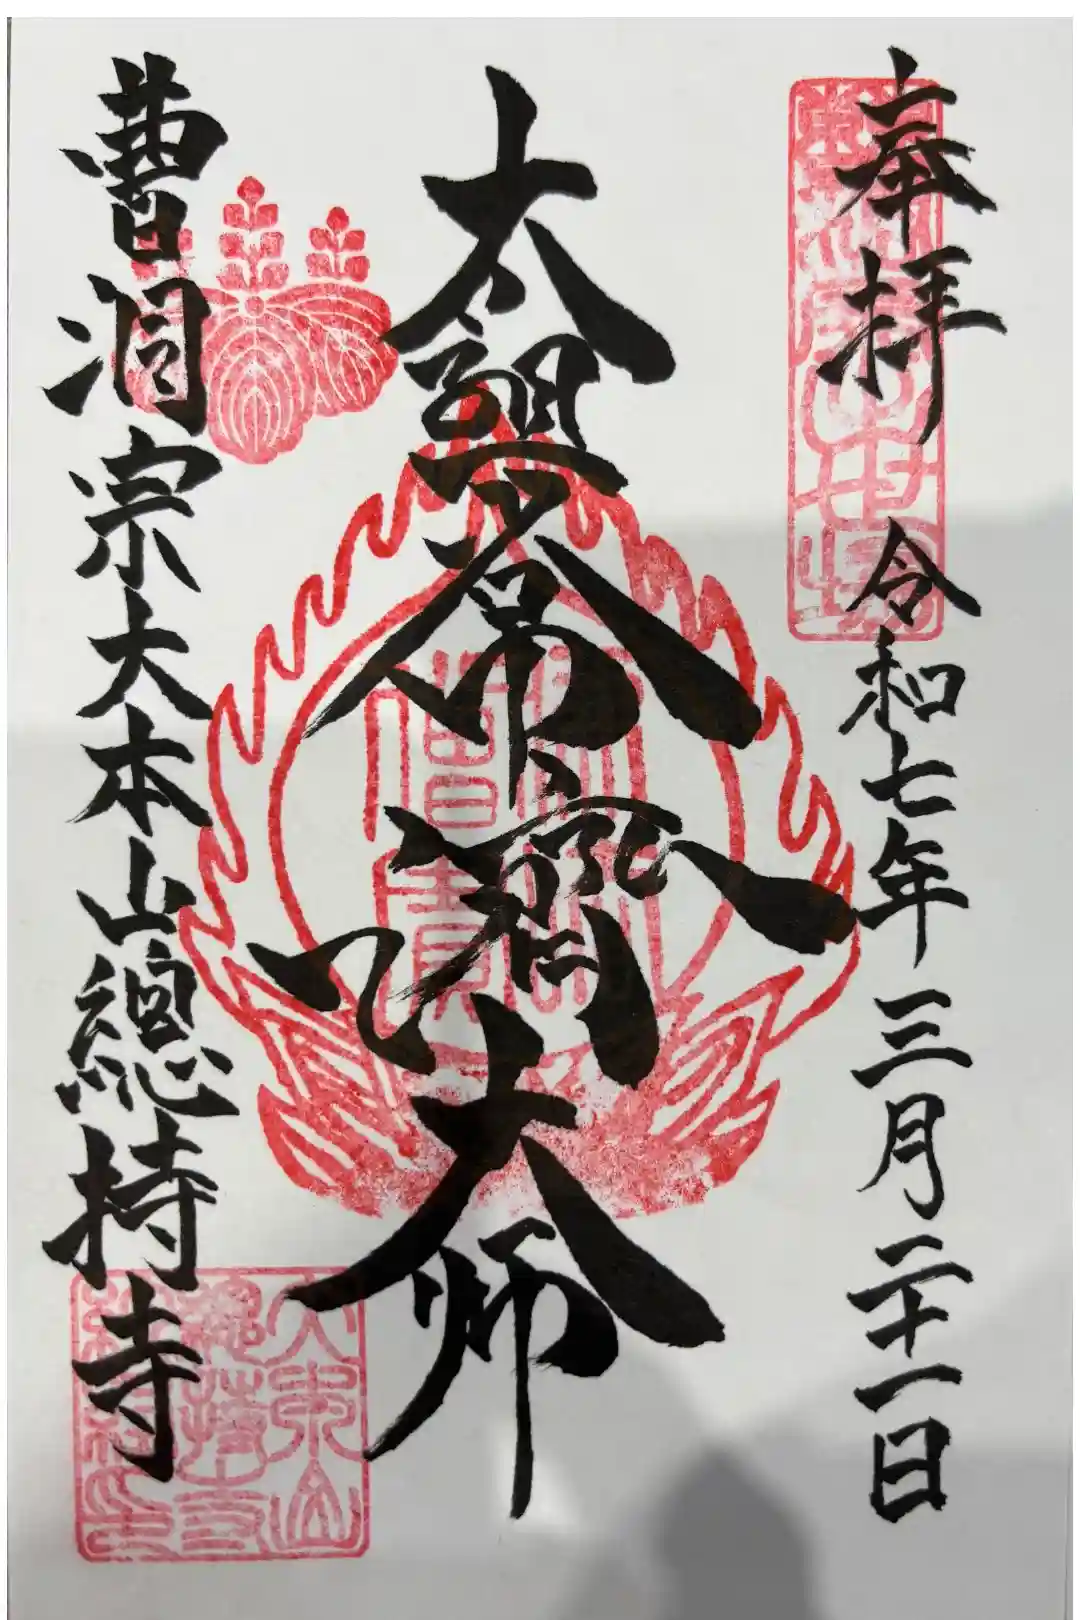 奉拝 令和七年三月二十一日
太祖常濟大师
曹洞宗大本山總持寺